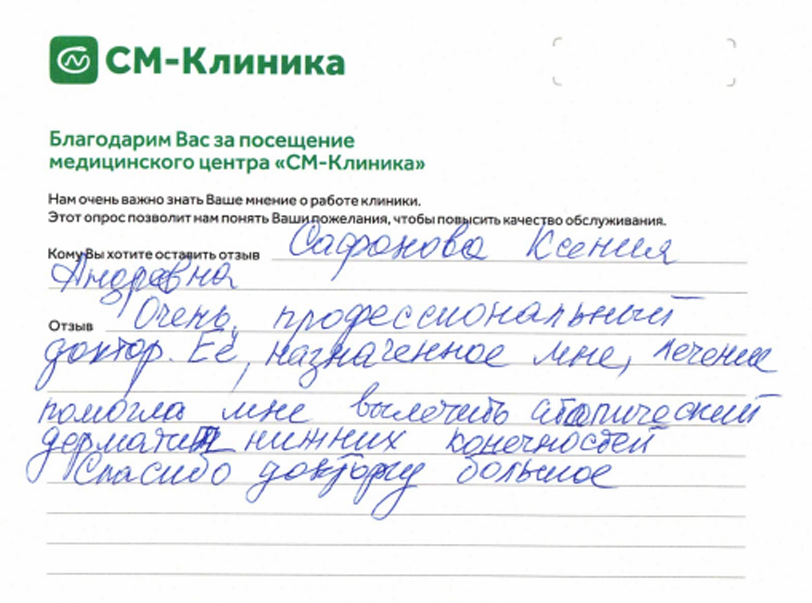 СМ-Клиника
Благодарим Вас за посещение
медицинского центра «СМ-Клиника»
Нам очень важно знать Ваше мнение о работе клиники.
Этот опрос позволит нам понять Ваши пожелания, чтобы повысить качество обслуживания.
Кому Вы хотите оставить отзыв Сафонова Ксения
Андревна
Отзыв Очень, профессиональный
доктор. Её, назначенное мне, лечение
помогла мне вылечить атопический
дерматит нижних конечностей
Спасибо доктору большое